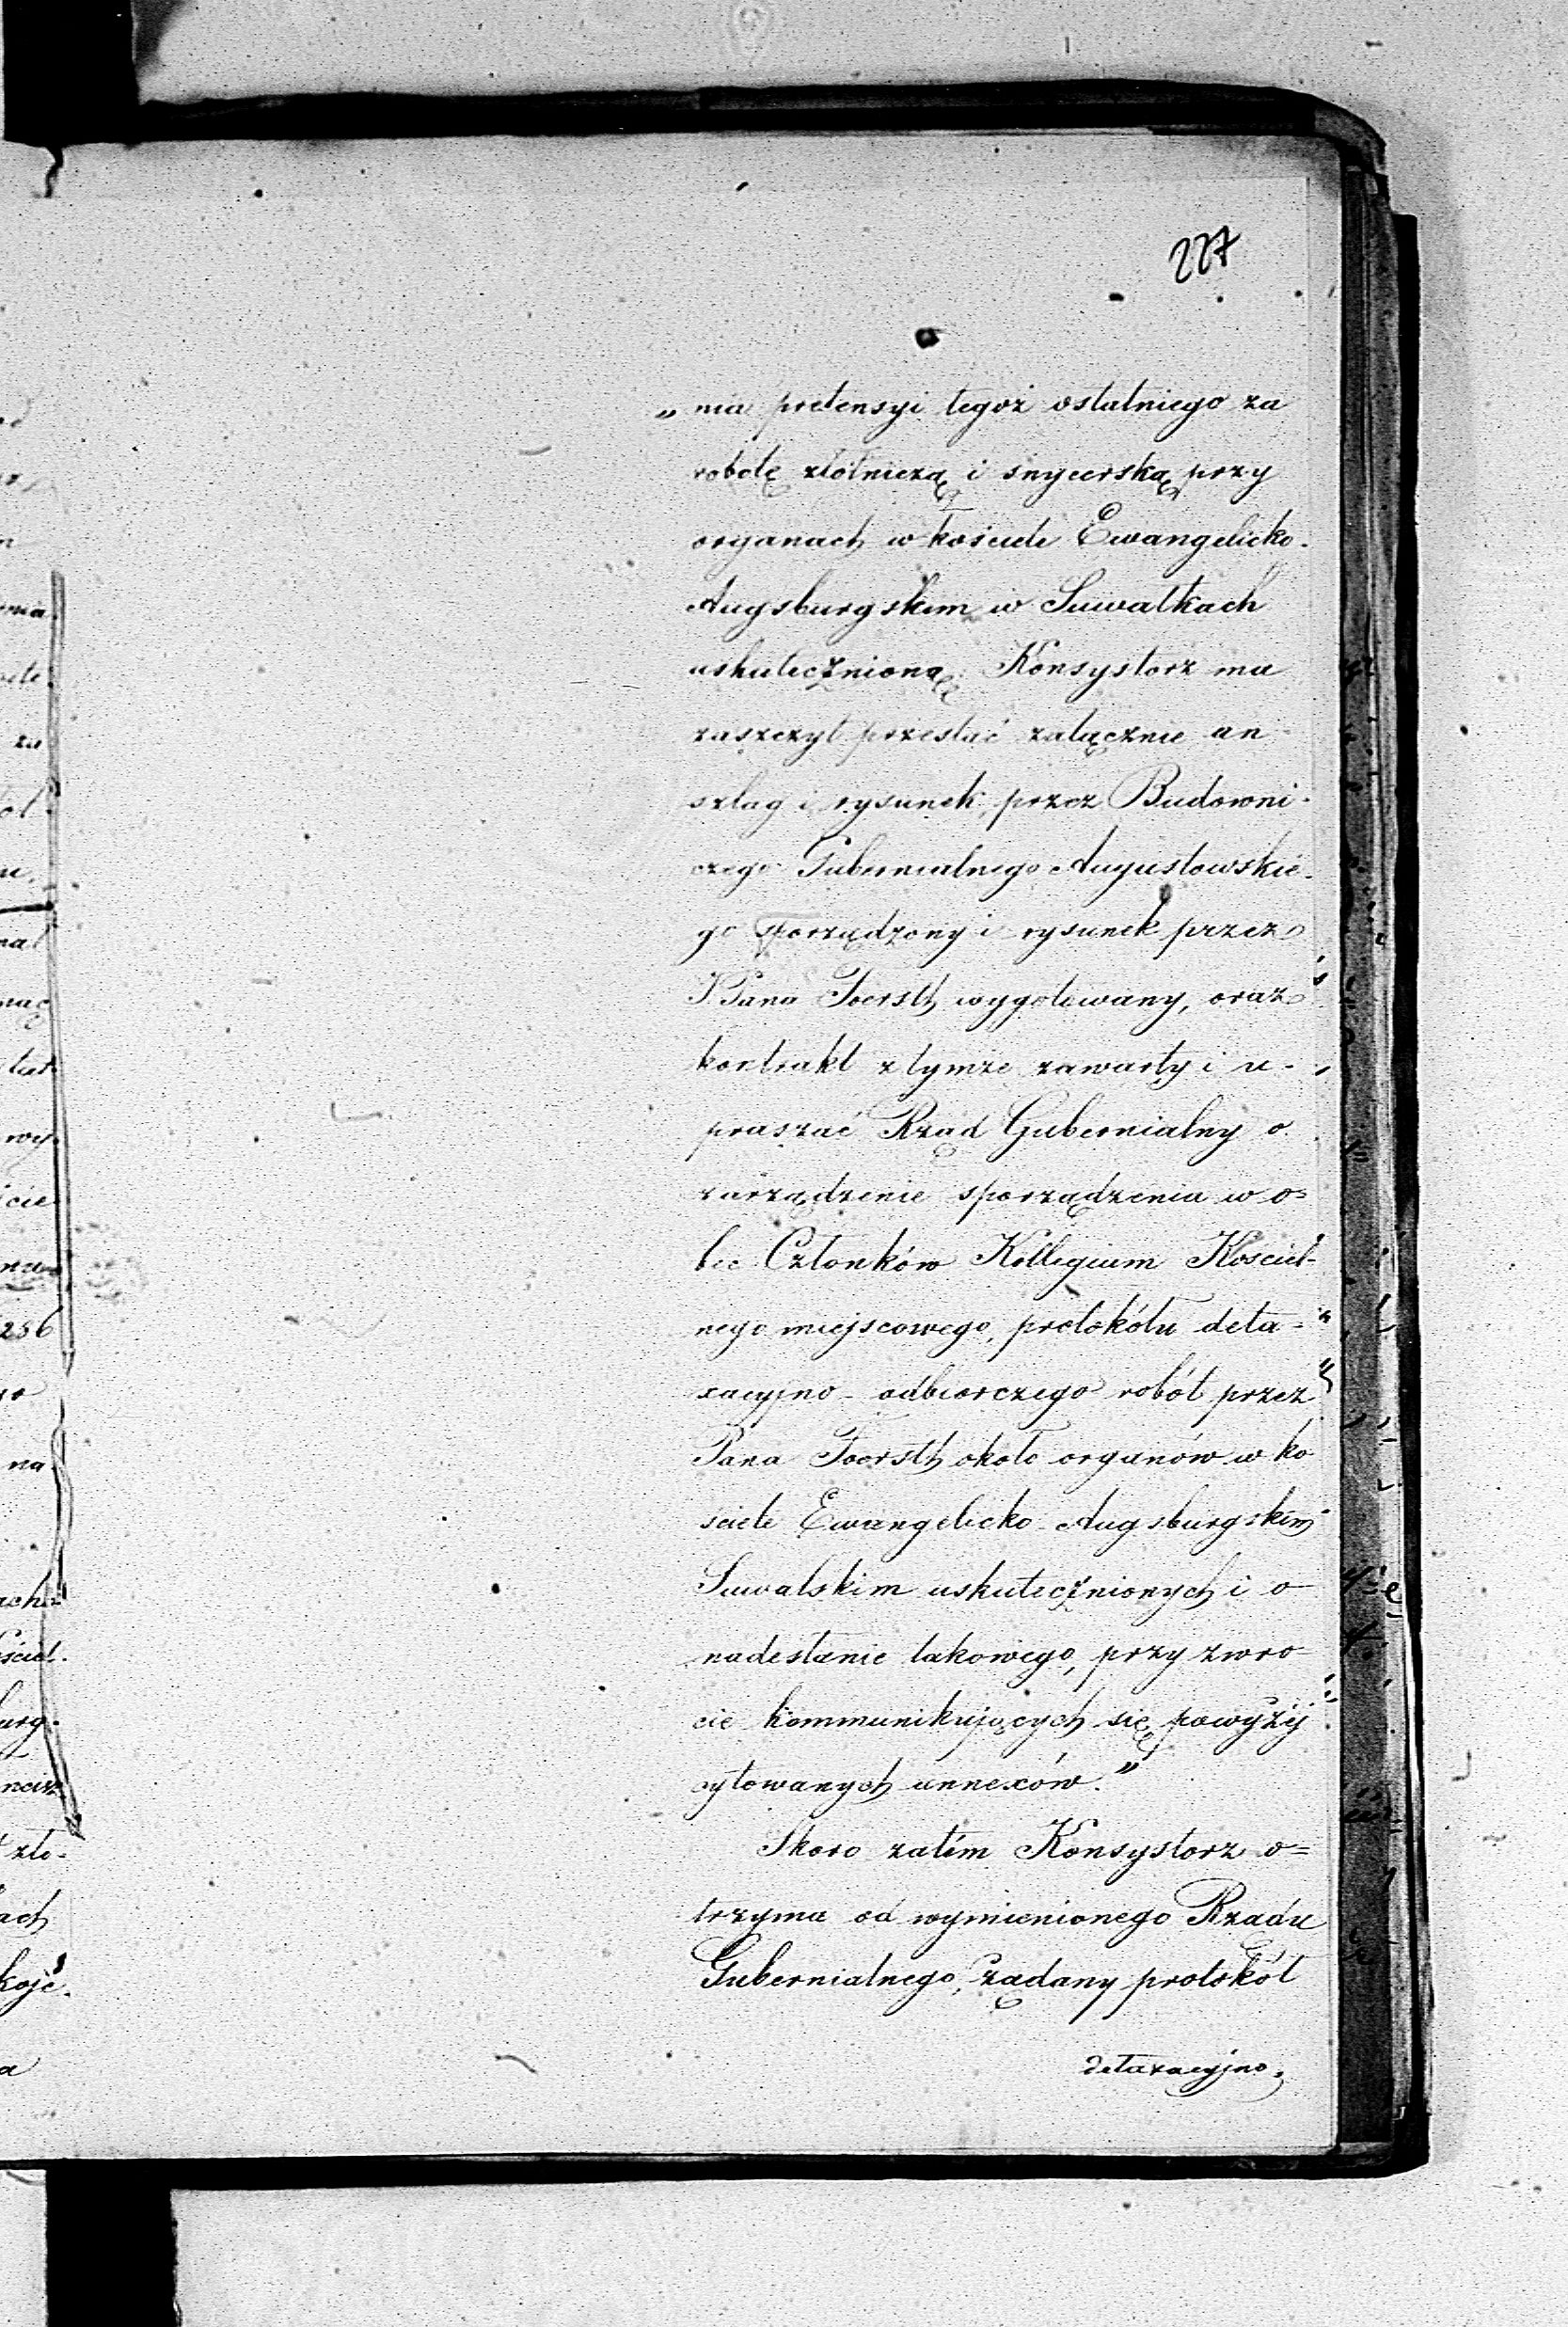 227
„nia pretensyi tegoż ostatniego za
robotę złótniczą i snycerską przy
organach w kościele Ewangelicko-
Augsburgskim w Suwałkach
uskutecznioną. Konsystorz ma
zaszczyt przesłać załącznie an-
szlag i rysunek, przez Budowni-
czego Gubernialnego Augustowskie-
go sporządzony i rysunek przez
Pana Foersth wygotowany, oraz
kontrakt z tymże zawarty i u-
praszać Rząd Gubernialny o
zarządzenie sporządzenia w o=
bec Członków Kollegium Kościel-
nego miejscowego, protokółu deta-
xacyjno-odbiorczego robót przez
Pana Foersth około organów w ko
ściele Ewangelicko-Augsburgskim
Suwalskim uskutecznionych i o
nadesłanie takowego, przy zwro-
cie kommunikujących się powyżéj
cytowanych annexów."
Skoro zatém Konsystorz o=
trzyma od wymienionego Rządu
Gubernialnego, żądany protokół
detaxacyjno-
ma
za
nal
wy
cie
256
na
ściel.
burg.
zło-
ach